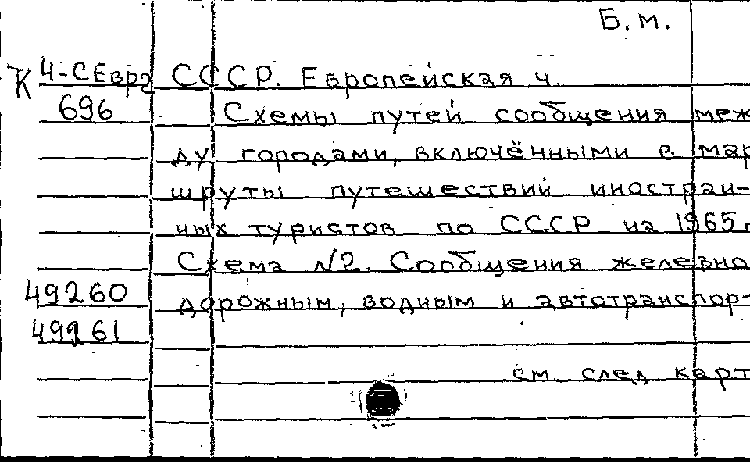 Б.м.
К 4-СЕвр2 СССР. Европейская ч.
696 Схемы путей сообщения меж
ду городами, включёнными в мар
шруты путешествий иностран-
ных туристов по СССР на 1965г
Схема №2. Сообщения железно
49260 дорожным, водным и автотранспор-
49261
см. след карт